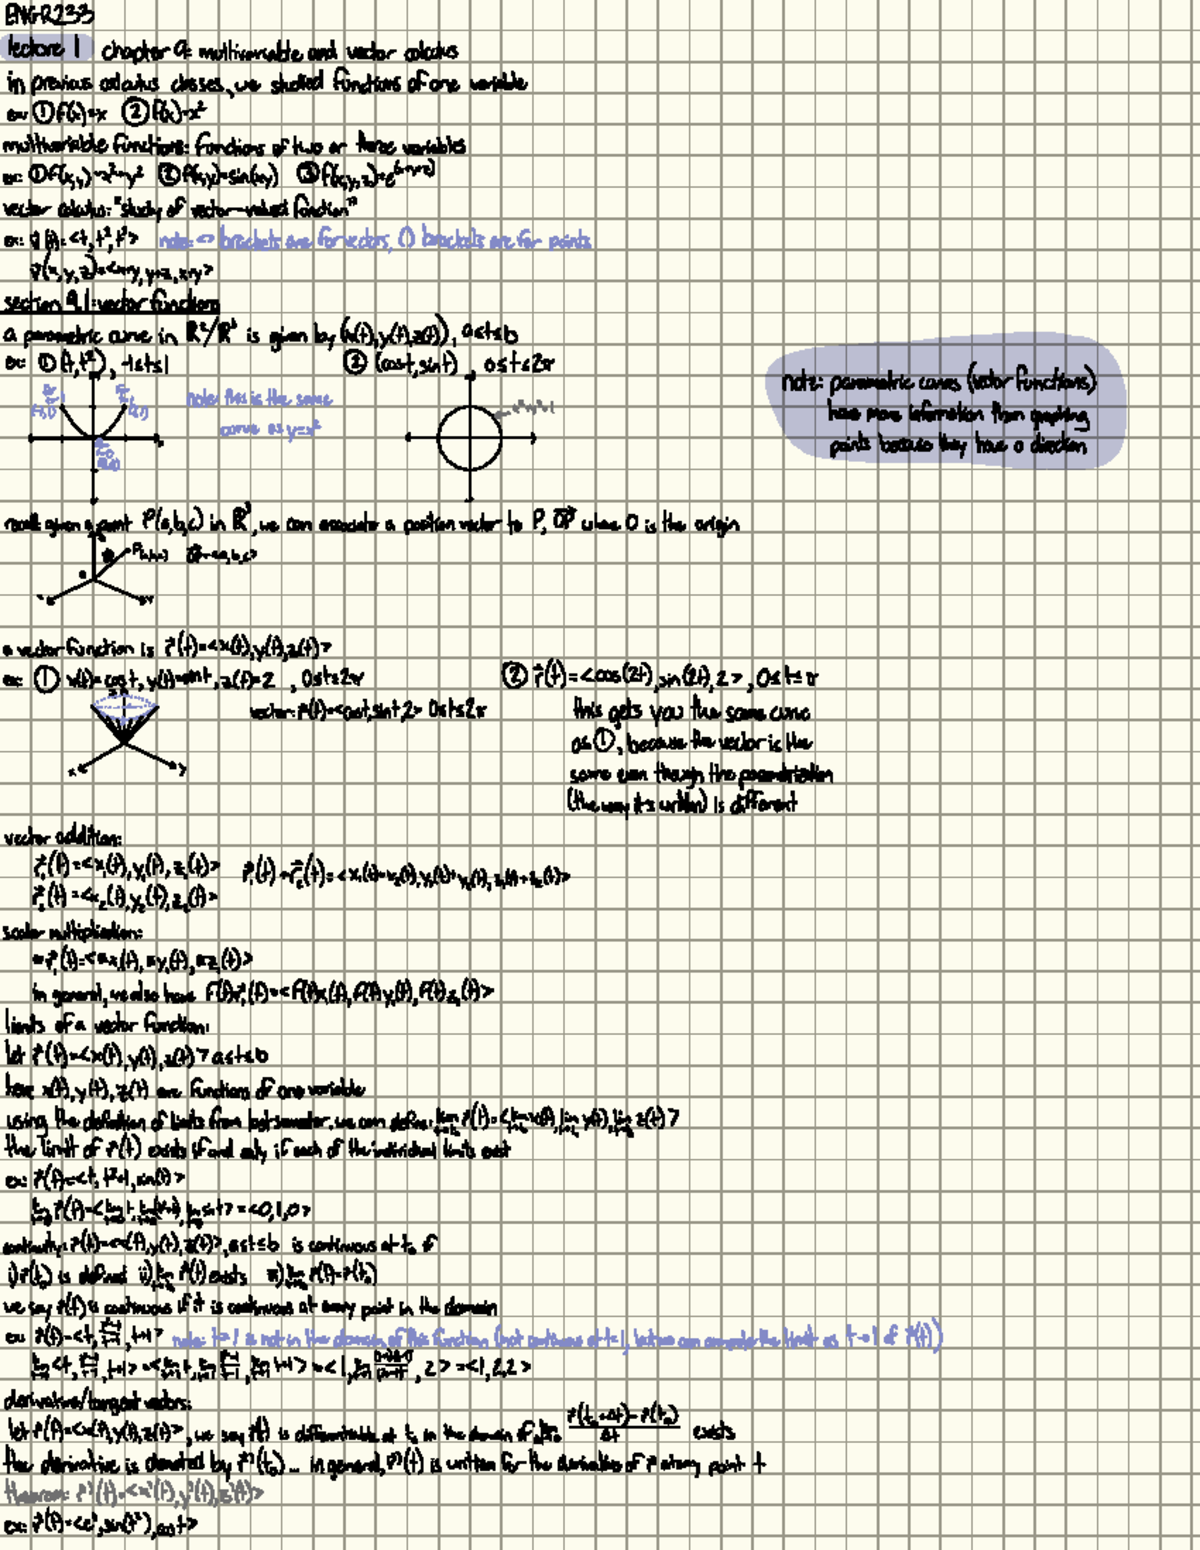 ENGR233
lecture 1 chapter 9: multivariable and vector calculus
in previous calculus classes, we studied functions of one variable
ex: ① f(x)=x ② f(x)=x²
multivariable functions: functions of two or three variables
ex: ① f(x,y)=x²+y² ② f(x,y)=sin(xy) ③ f(x,y,z)=e^(x+y+z)
vector calculus: "study of vector-valued function"
ex: (t)=<t, t², t³> note: <> brackets are for vectors, () brackets are for points
(x,y,z)=<x+y, y+z, x+y>
section 9.1: vector functions
a parametric curve in ℝ²/ℝ³ is given by (x(t),y(t),z(t)), a≤t≤b
ex: ① (t,t²), -1≤t≤1 ② (cost,sint), 0≤t≤2π
note: this is the same
curve as y=x²
x²+y²=1
note: parametric curves (vector functions)
have more information than graphing
points because they have a direction
recall: given a point P(a,b,c) in ℝ³, we can associate a position vector to P, OP⃗ where O is the origin
P(a,b,c) OP⃗=<a,b,c>
a vector function is r⃗(t)=<x(t),y(t),z(t)>
ex: ① x(t)=cost, y(t)=sint, z(t)=2 , 0≤t≤2π
vector: r⃗(t)=<cost,sint,2> 0≤t≤2π
x y
② r⃗(t)=<cos(2t),sin(2t),2>, 0≤t≤π
this gets you the same curve
as ①, because the vector is the
same even though the parametrization
(the way it's written) is different
vector addition:
r⃗₁(t)=<x₁(t),y₁(t),z₁(t)> r⃗₁(t)+r⃗₂(t)=<x₁(t)+x₂(t),y₁(t)+y₂(t),z₁(t)+z₂(t)>
r⃗₂(t)=<x₂(t),y₂(t),z₂(t)>
scalar multiplication:
r⃗₁(t)=< x₁(t), y₁(t), z₁(t)>
in general, we also have f(t)r⃗₁(t)=<f(t)x₁(t),f(t)y₁(t),f(t)z₁(t)>
limits of a vector function:
let r⃗(t)=<x(t),y(t),z(t)> a≤t≤b
here x(t),y(t),z(t) are functions of one variable
using the definition of limits from last semester, we can define: lim r⃗(t)=<lim x(t),lim y(t),lim z(t)>
the limit of r⃗(t) exists if and only if each of the individual limits exist
ex: r⃗(t)=<t, t²+1, sin(t)>
lim r⃗(t)=<lim t, lim(t²+1), lim sint>=<0,1,0>
continuity: r⃗(t)=<x(t),y(t),z(t)>, a≤t≤b is continuous at t₀ if
i) r⃗(t₀) is defined ii) lim r⃗(t) exists iii) lim r⃗(t)=r⃗(t₀)
we say r⃗(t) is continuous if it is continuous at every point in the domain
ex: r⃗(t)=<t, t²-1/t-1, t+1> note: t=1 is not in the domain of this function (not continuous at t=1, but we can compute the limit as t→1 of r⃗(t))
lim<t, t²-1/t-1, t+1>=<lim t, lim t²-1/t-1, lim t+1>=<1, lim (t-1)(t+1)/(t-1), 2>=<1,2,2>
derivative/tangent vectors:
let r⃗(t)=<x(t),y(t),z(t)>, we say r⃗(t) is differentiable at t₀ in the domain if lim r⃗(t₀+Δt)-r⃗(t₀)/Δt exists
the derivative is denoted by r⃗'(t₀)... in general, r⃗'(t) is written for the derivative of r⃗ at any point t
theorem: r⃗'(t)=<x'(t),y'(t),z'(t)>
ex: r⃗(t)=<eᵗ,sin(t²),cost>